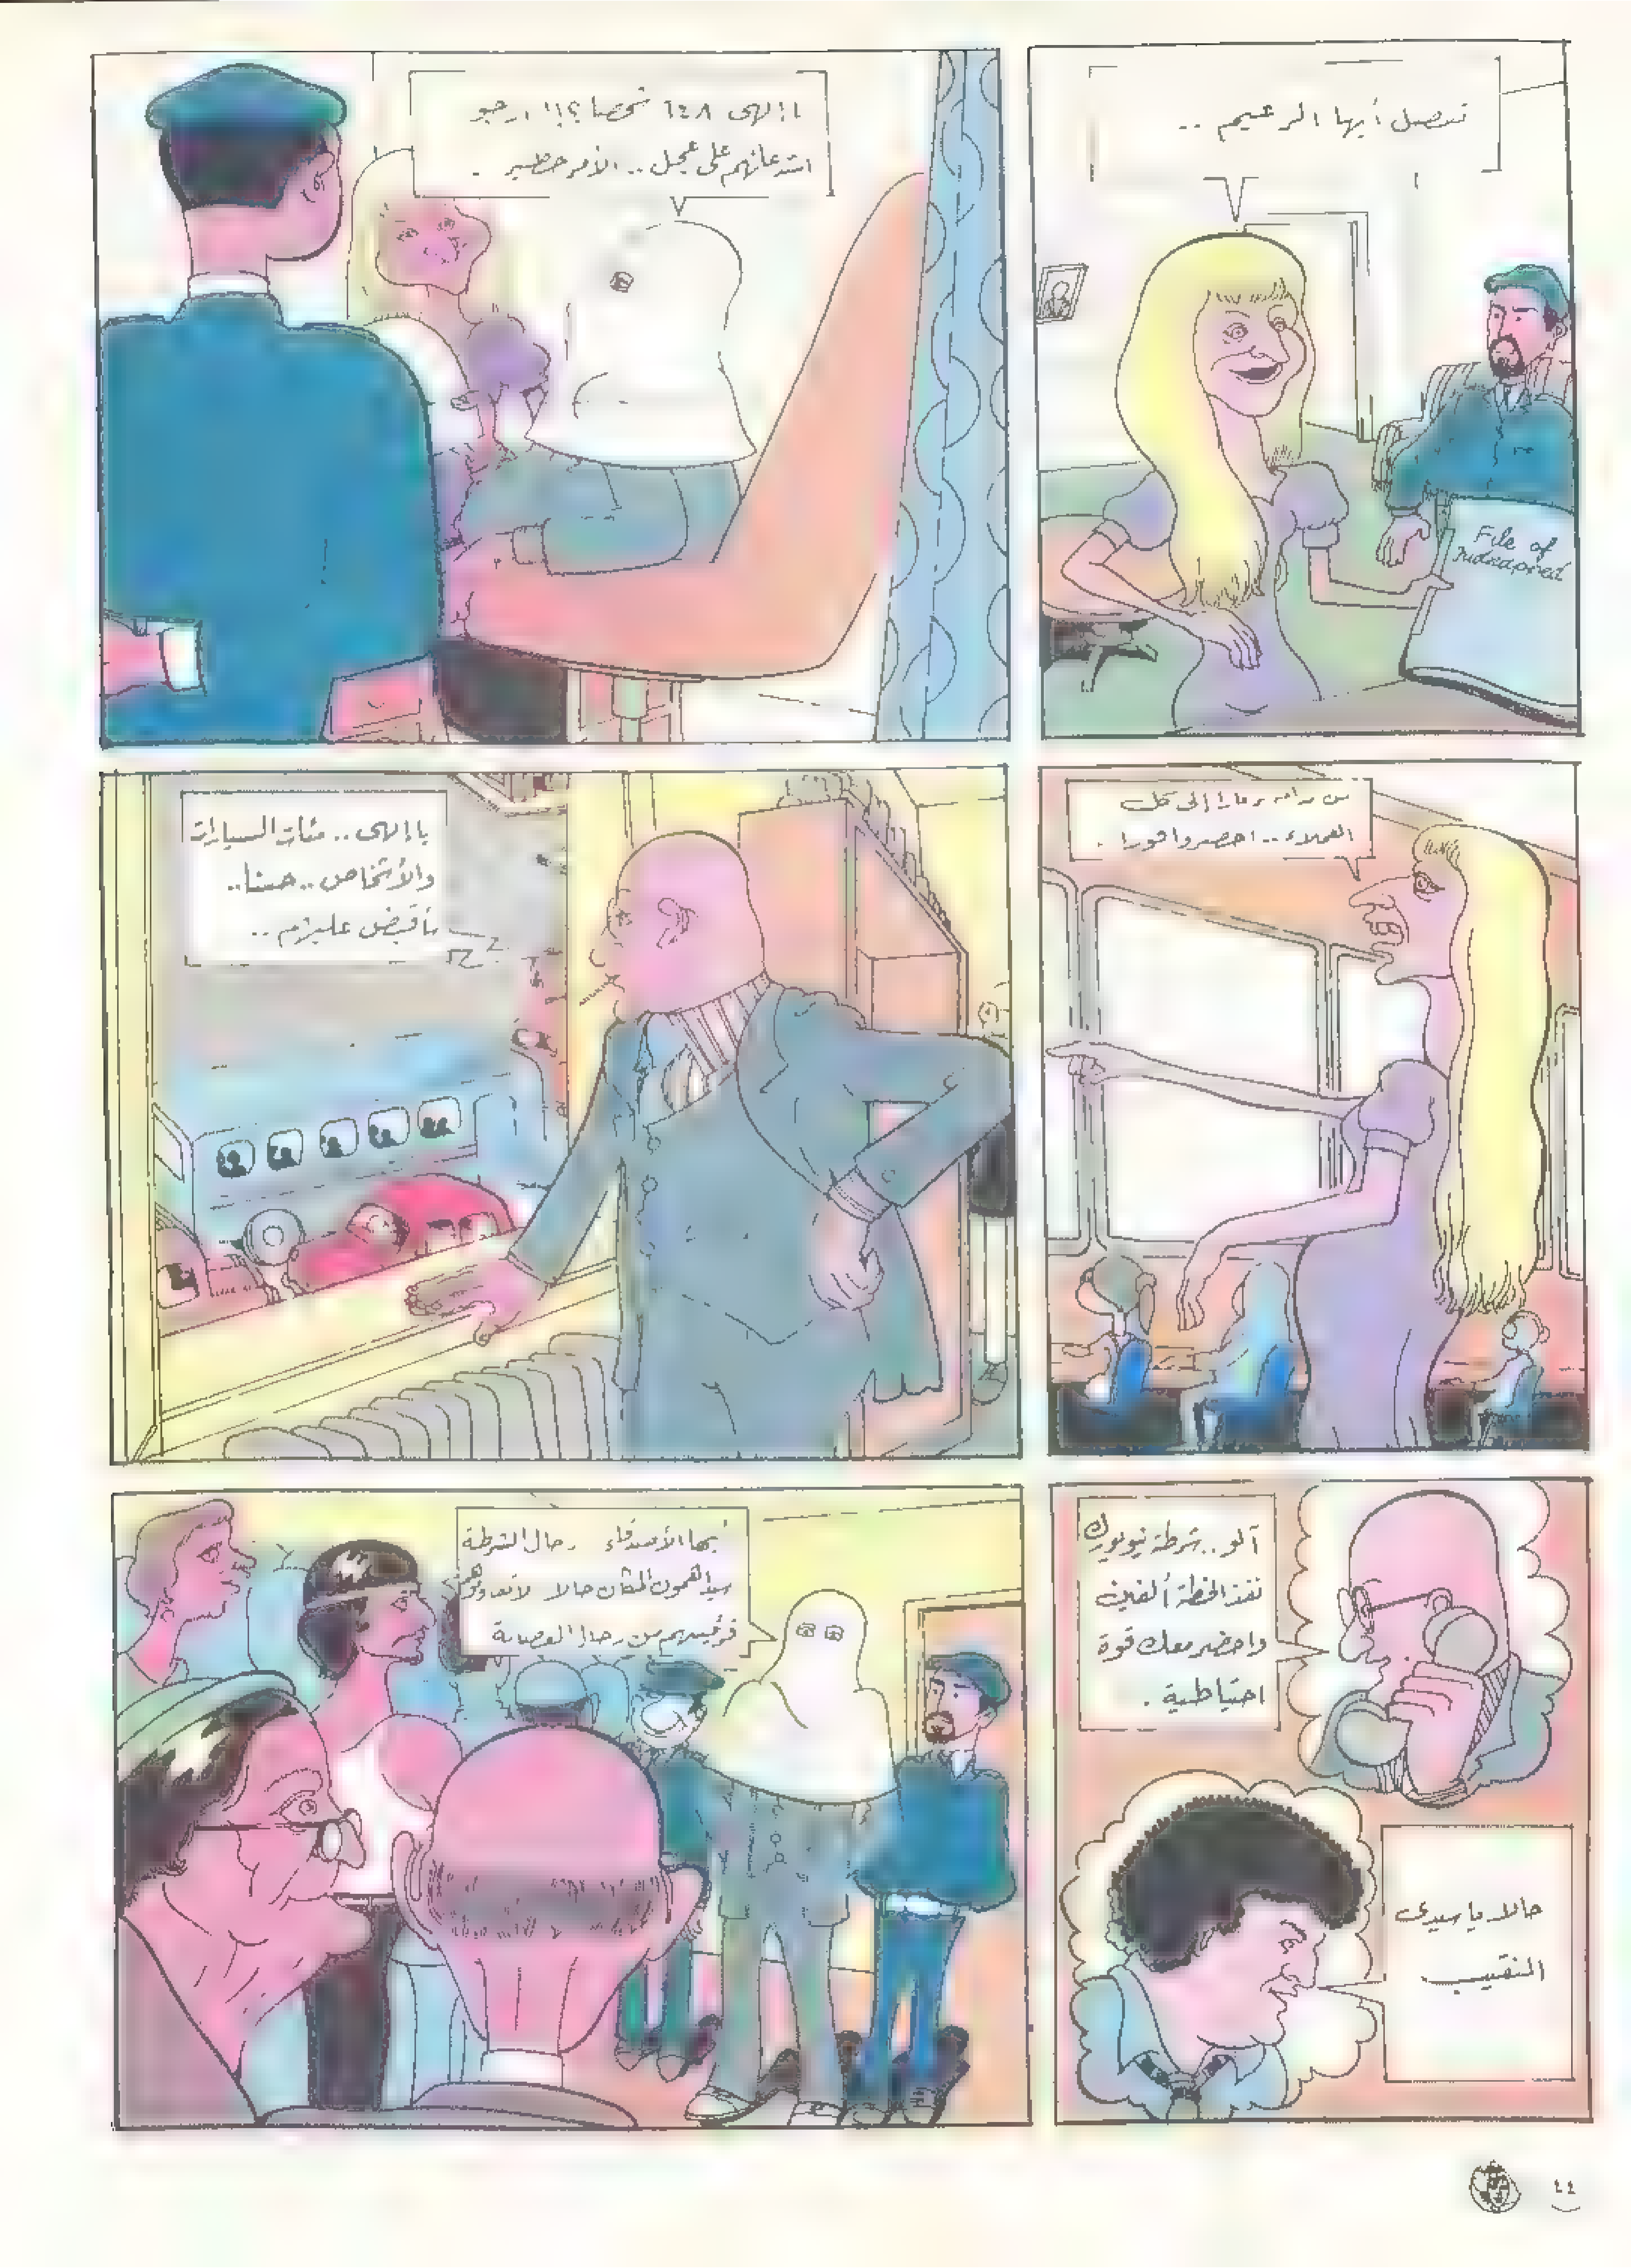 تفضل أيها الزعيم ..
File of
Kidnapped
يا إلهى ٦٤٨ شخصا ؟!! ارجو
استدعائهم على عجل .. الأمر خطير .
إلى كل
العملاء .. احضروا فورا .
يا إلهى .. مئات السيارات
والأشخاص .. حسنا ..
سأقبض عليهم ..
آلو .. شرطة نيويورك
نفذ الخطة ألفين
واحضر معك قوة
احتياطية .
حالا يا سيدى
النقيب
أيها الأصدقاء رجال الشرطة
سيداهمون المكان حالا لا تعاونوهم
من رجال العصابة
٤٤